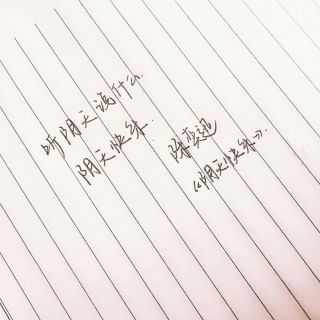 听阴天说什么.
阴天快乐.
陈奕迅
《阴天快乐》.